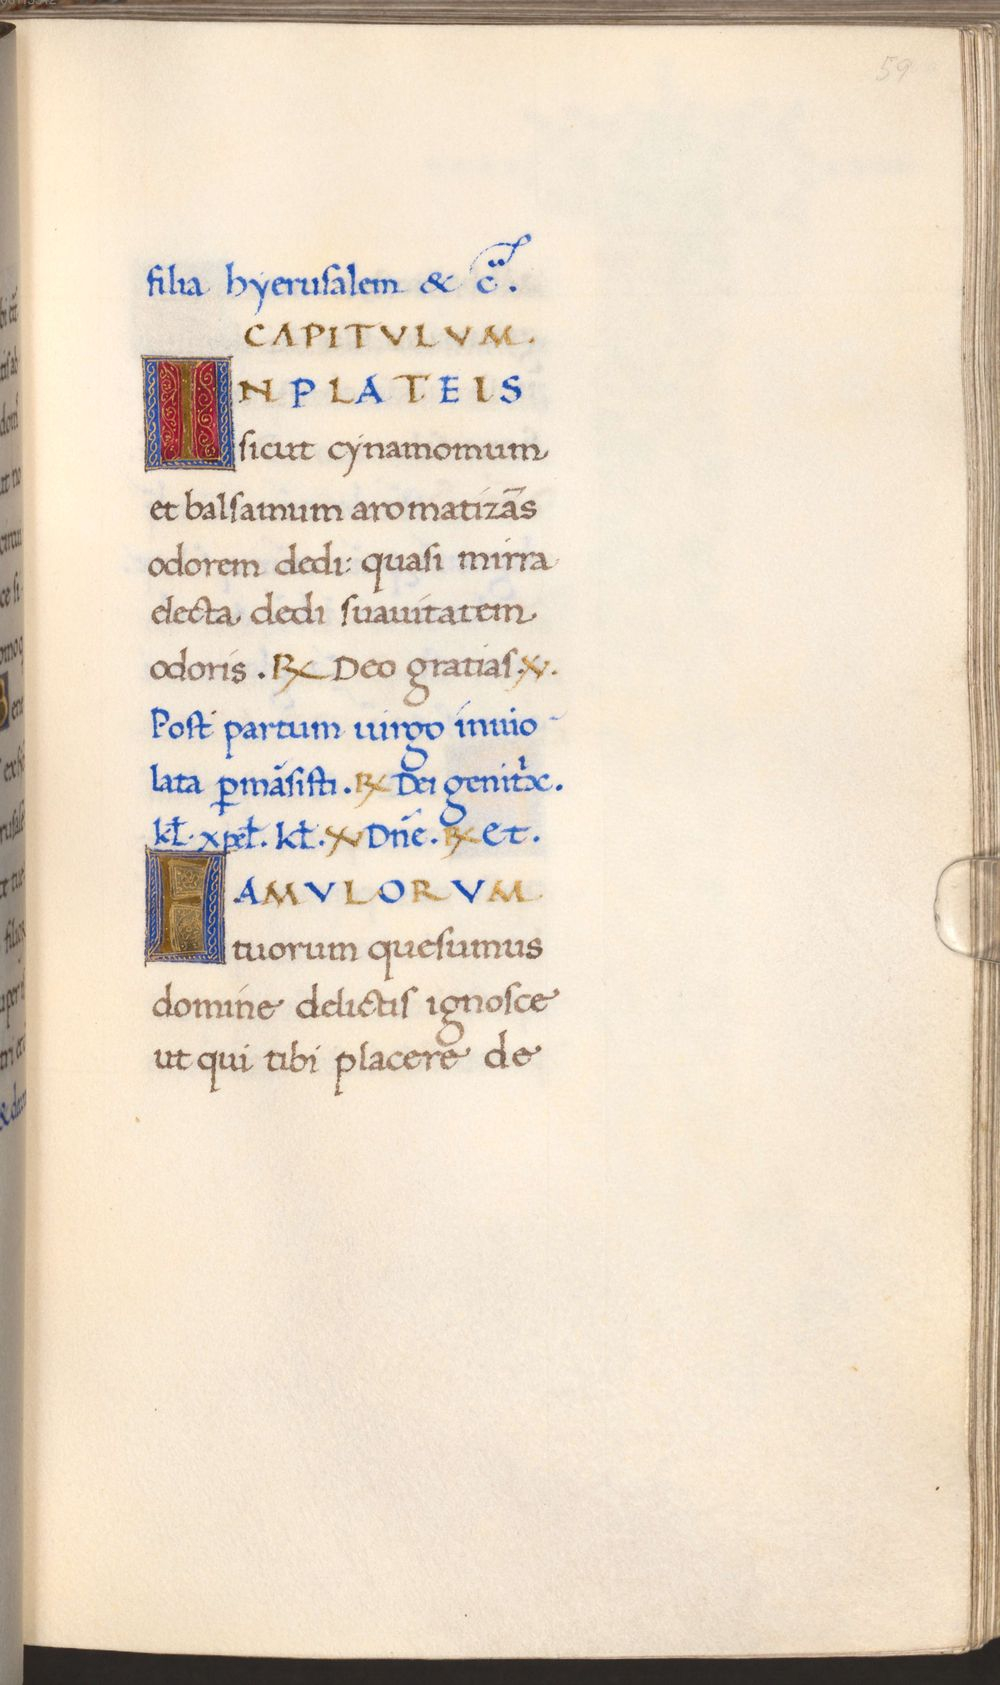 59
filia hyerusalem & c̃.
CAPITVLVM.
IN PLATEIS
sicut cynamomum
et balsamum aromatizãs
odorem dedi: quasi mirra
electa dedi suauitatem
odoris. ℞ Deo gratias. ℣.
Post partum uirgo inuio-
lata ꝑmãsisti. ℞ Dei genitͥx.
kł. xp̃eł. kł. ℣ Dñe. ℞ Et.
FAMVLORVM
tuorum quesumus
domine delictis ignosce
ut qui tibi placere de